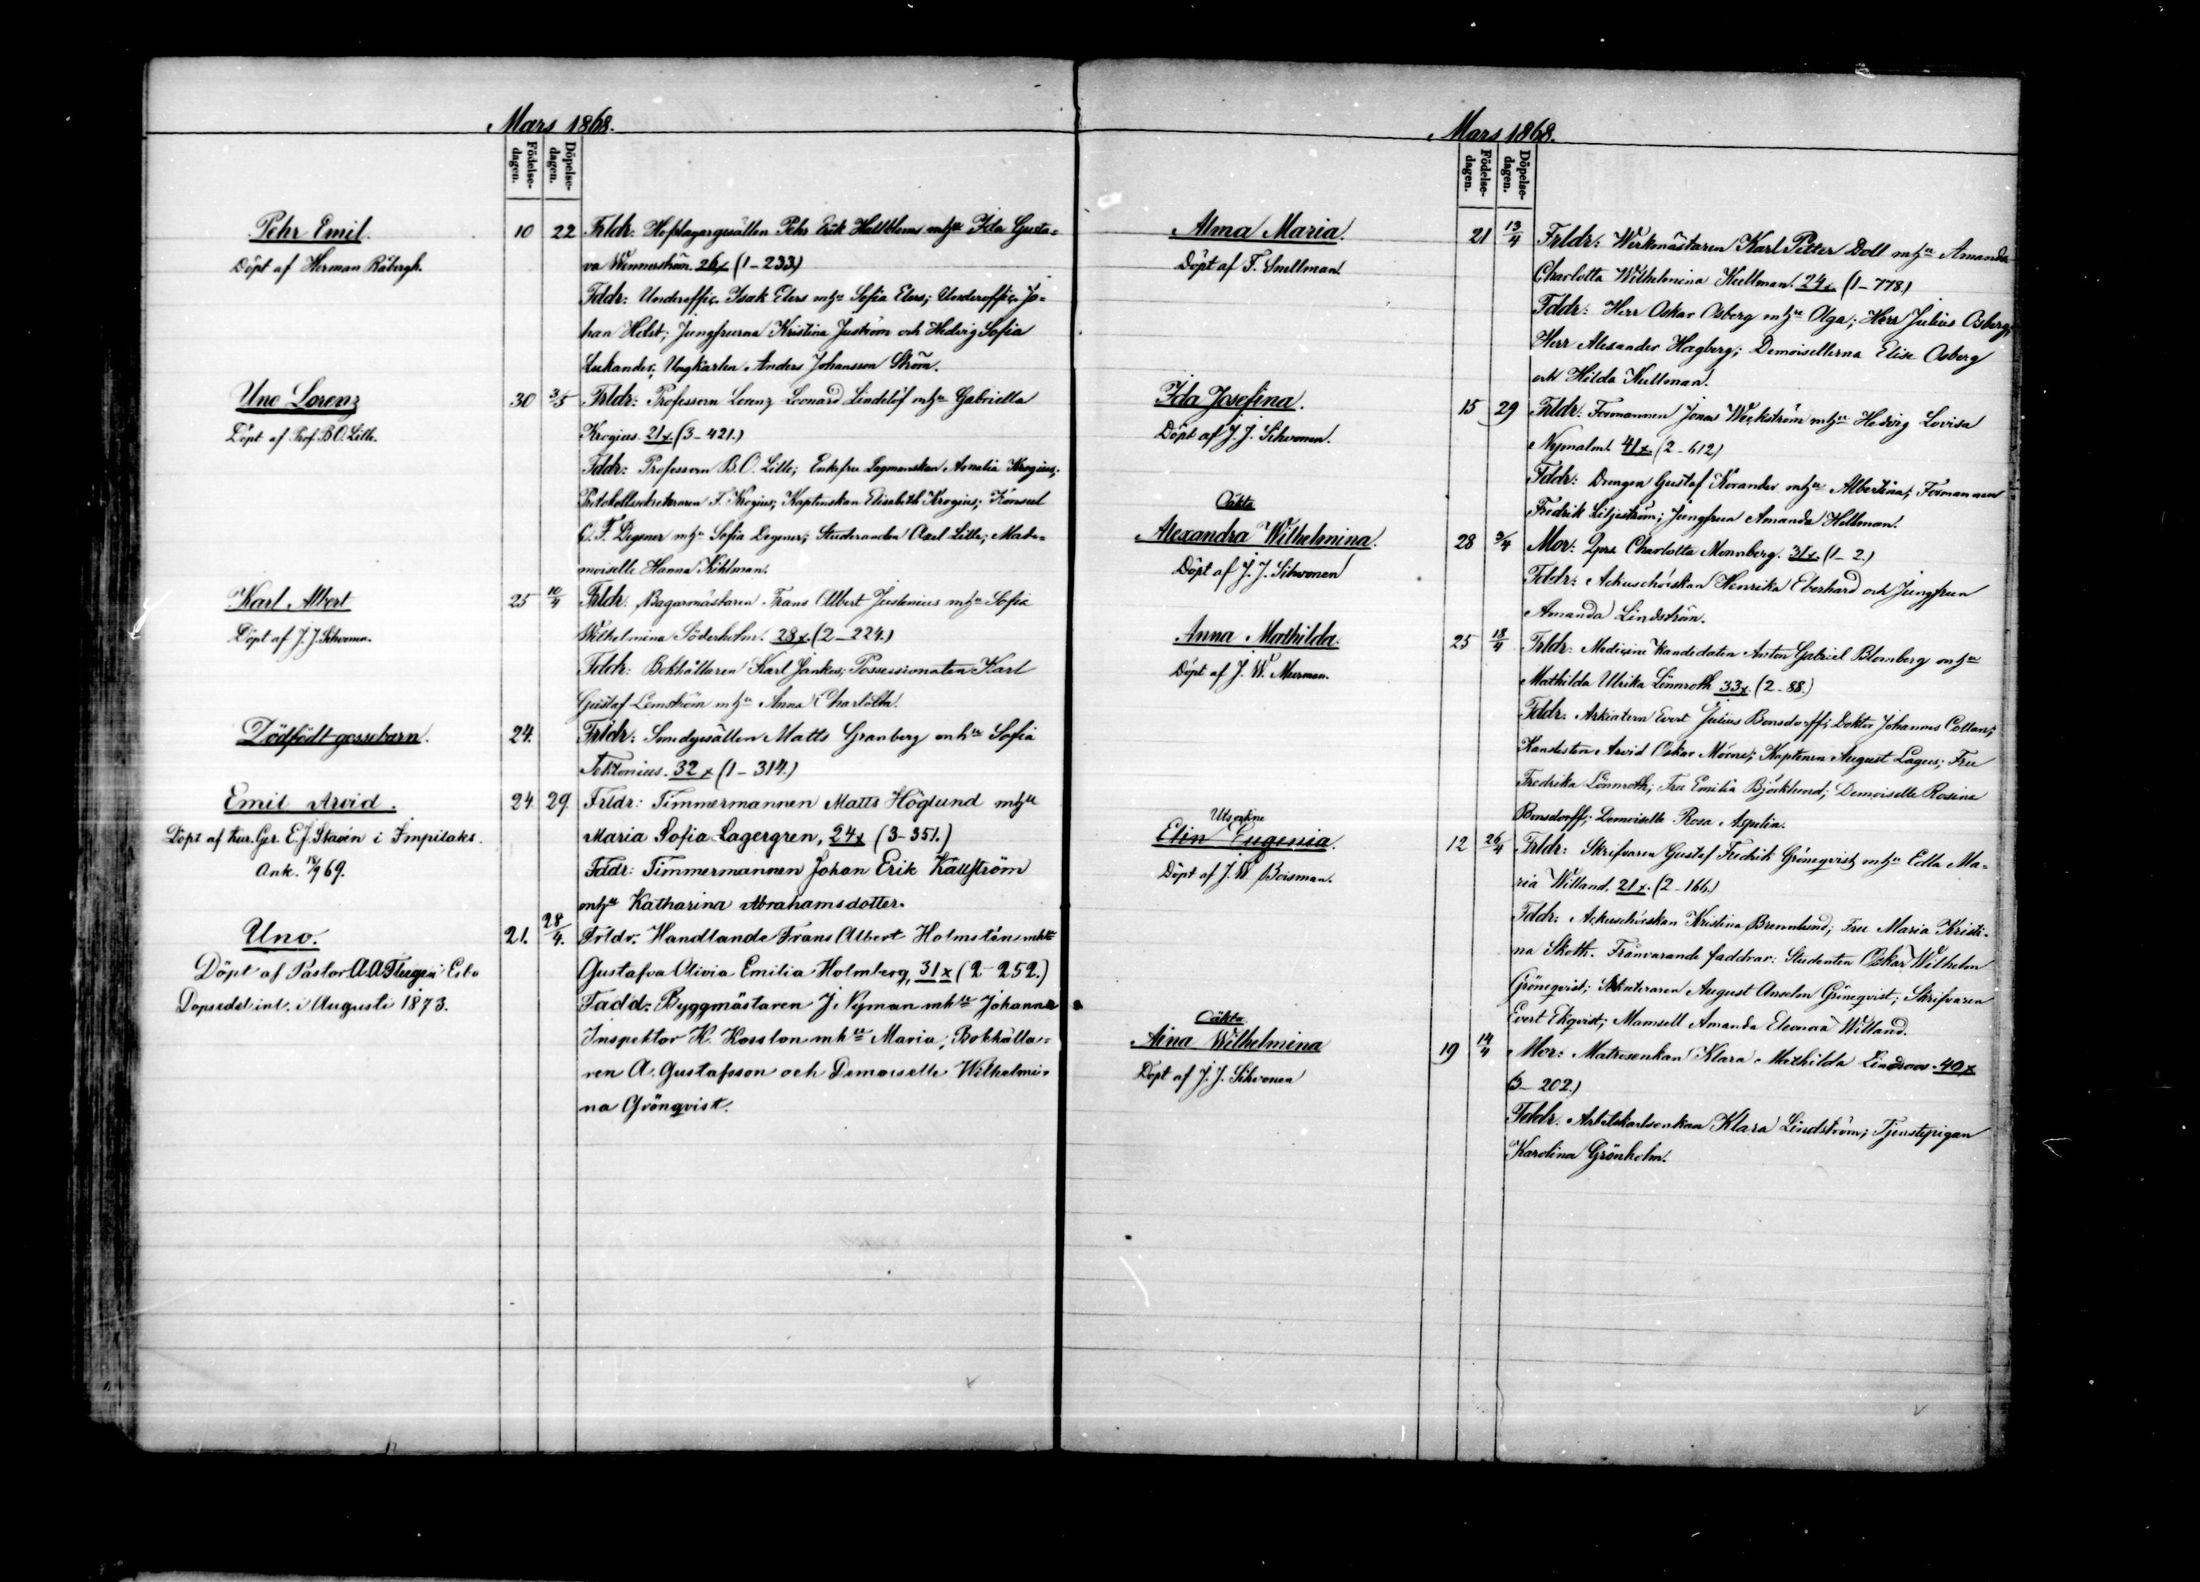 Mars 1868.
Födelse-dagen.
Döpelse-dagen.
Pehr Emil.
Döpt af Herman Råbergh.
10 22
Frldr: Hofslagargesällen Pehr Erik Hallbloms mhu Ida Gusta-
va Wennerström. 26 x (1–233)
Fddr: Underoffic. Isak Elers mhu Sofia Elers; Underoffic. Jo-
han Helst; Jungfrurna Kristina Juström och Hedvig Sofia
Lukander; Ungkarlen Anders Johansson Ström.
Uno Lorenz
Döpt af Prof. B.O. Lille.
30 3/5
Frldr: Professorn Lorenz Leonard Lindelöf mhu Gabriella
Krogius. 21 x (3–421.)
Fddr: Professorn B.O. Lille; Enkefru Lagmanskan Amalia Krogius;
Protokollsekreteraren F. Krogius; Kaptenskan Elisabeth Krogius; Konsul
C. F. Degener mhu Sofia Degener; Studeranden Axel Lille; Made-
moiselle Hanna Kihlman.
Karl Albert
Döpt af J. J. Sihvonen.
25 10/4
Frldr: Bagarmästaren Frans Albert Juslenius mhu Sofia
Wilhelmina Söderholm. 28 x (2–224.)
Fddr: Bokhållaren Karl Jankes; Possessionaten Karl
Gustaf Lemström mhu Anna Charlotta.
Dödfödt gossebarn.
24.
Frldr: Smedgesällen Matts Granberg mhu Sofia
Tektonius. 32 x (1–314.)
Emil Arvid.
Döpt af Kur. Gr. E. J. Stavén i Impilaks.
Ank. 18/9 69.
24 29
Frldr: Timmermannen Matts Höglund mhu
Maria Sofia Lagergren, 24 x (3–351.)
Fddr: Timmermannen Johan Erik Kallström
mhu Katharina Abrahamsdotter.
Uno.
Döpt af Pastor A.A. Flugin i Esbo
Dopsedel int. i Augusti 1873.
21. 28/4.
Frldr. Handlande Frans Albert Holmsténs mhu
Gustafva Olivia Emilia Holmberg, 31 x (2–252.)
Fadd: Byggmästaren J. Nyman mhu Johanna
Inspektor K. Kosslon mhu Maria, Bokhålla-
ren A. Gustafsson och Demoiselle Wilhelmi-
na Grönqvist.
Mars 1868.
Födelse-dagen.
Döpelse-dagen.
Alma Maria.
Döpt af F. Snellman.
21 13/4
Frldr: Werkmästaren Karl Petter Doll mhu Amanda
Charlotta Wilhelmina Kullman. 24 x (1–778.)
Fddr: Herr Oskar Osberg mhu Olga; Herr Julius Osberg;
Herr Alexander Hagberg; Demoisellerna Elise Osberg
och Hilda Kullman.
Ida Josefina.
Döpt af J. J. Sihvonen.
15 29
Frldr: Formannen Jonas Weckström mhu Hedvig Lovisa
Nymalm. 41 x (2–612)
Fddr: Drengen Gustaf Korander mhu Albertina; Formannen
Fredrik Liljeström; Jungfrun Amanda Hellman.
Oäkta
Alexandra Wilhelmina.
Döpt af J. J. Sihvonen
28 3/4
Mor: Charlotta Monnberg. 31 x (1–2.)
Fddr: Ackuschörskan Henrika Eberhard och Jungfrun
Amanda Lindström.
Anna Mathilda.
Döpt af J. W. Murman.
25 18/4
Frldr: Medicine Kandidaten Anton Gabriel Blomberg mhu
Mathilda Ulrika Lönnroth 33 x (2–88.)
Fddr. Arkiatern Evert Julius Bonsdorff; Doktor Johannes Collan;
Kanslisten Arvid Oskar Mörne; Kaptenen August Lagus; Fru
Fredrika Lönnroth; Fru Emilia Björklund; Demoiselle Rosina
Bonsdorff; Demoiselle Rosa Aspelin.
Elin Eugenia.
Döpt af J. W. Boisman.
12 26/4
Frldr: Skrifvaren Gustaf Fredrik Grönqvist mhu Edla Ma-
ria Willand. 21 x (2–166.)
Fddr: Ackuschörskan Kristina Brennlund; Fru Maria Kristi-
na Skoth. Frånvarande faddrar: Studenten Oskar Wilhelm
Grönqvist; August Anselm Grönqvist; Skrifvaren
Evert Ekqvist; Mamsell Amanda Eleonora Willand.
Oäkta
Aina Wilhelmina
Döpt af J. J. Sihvonen
19 14/4
Mor: Matrosenkan Klara Mathilda Lindroos. 40 x
(3–202.)
Fddr. Arbetskarlsenkan Klara Lindström; Tjenstepigan
Karolina Grönholm.